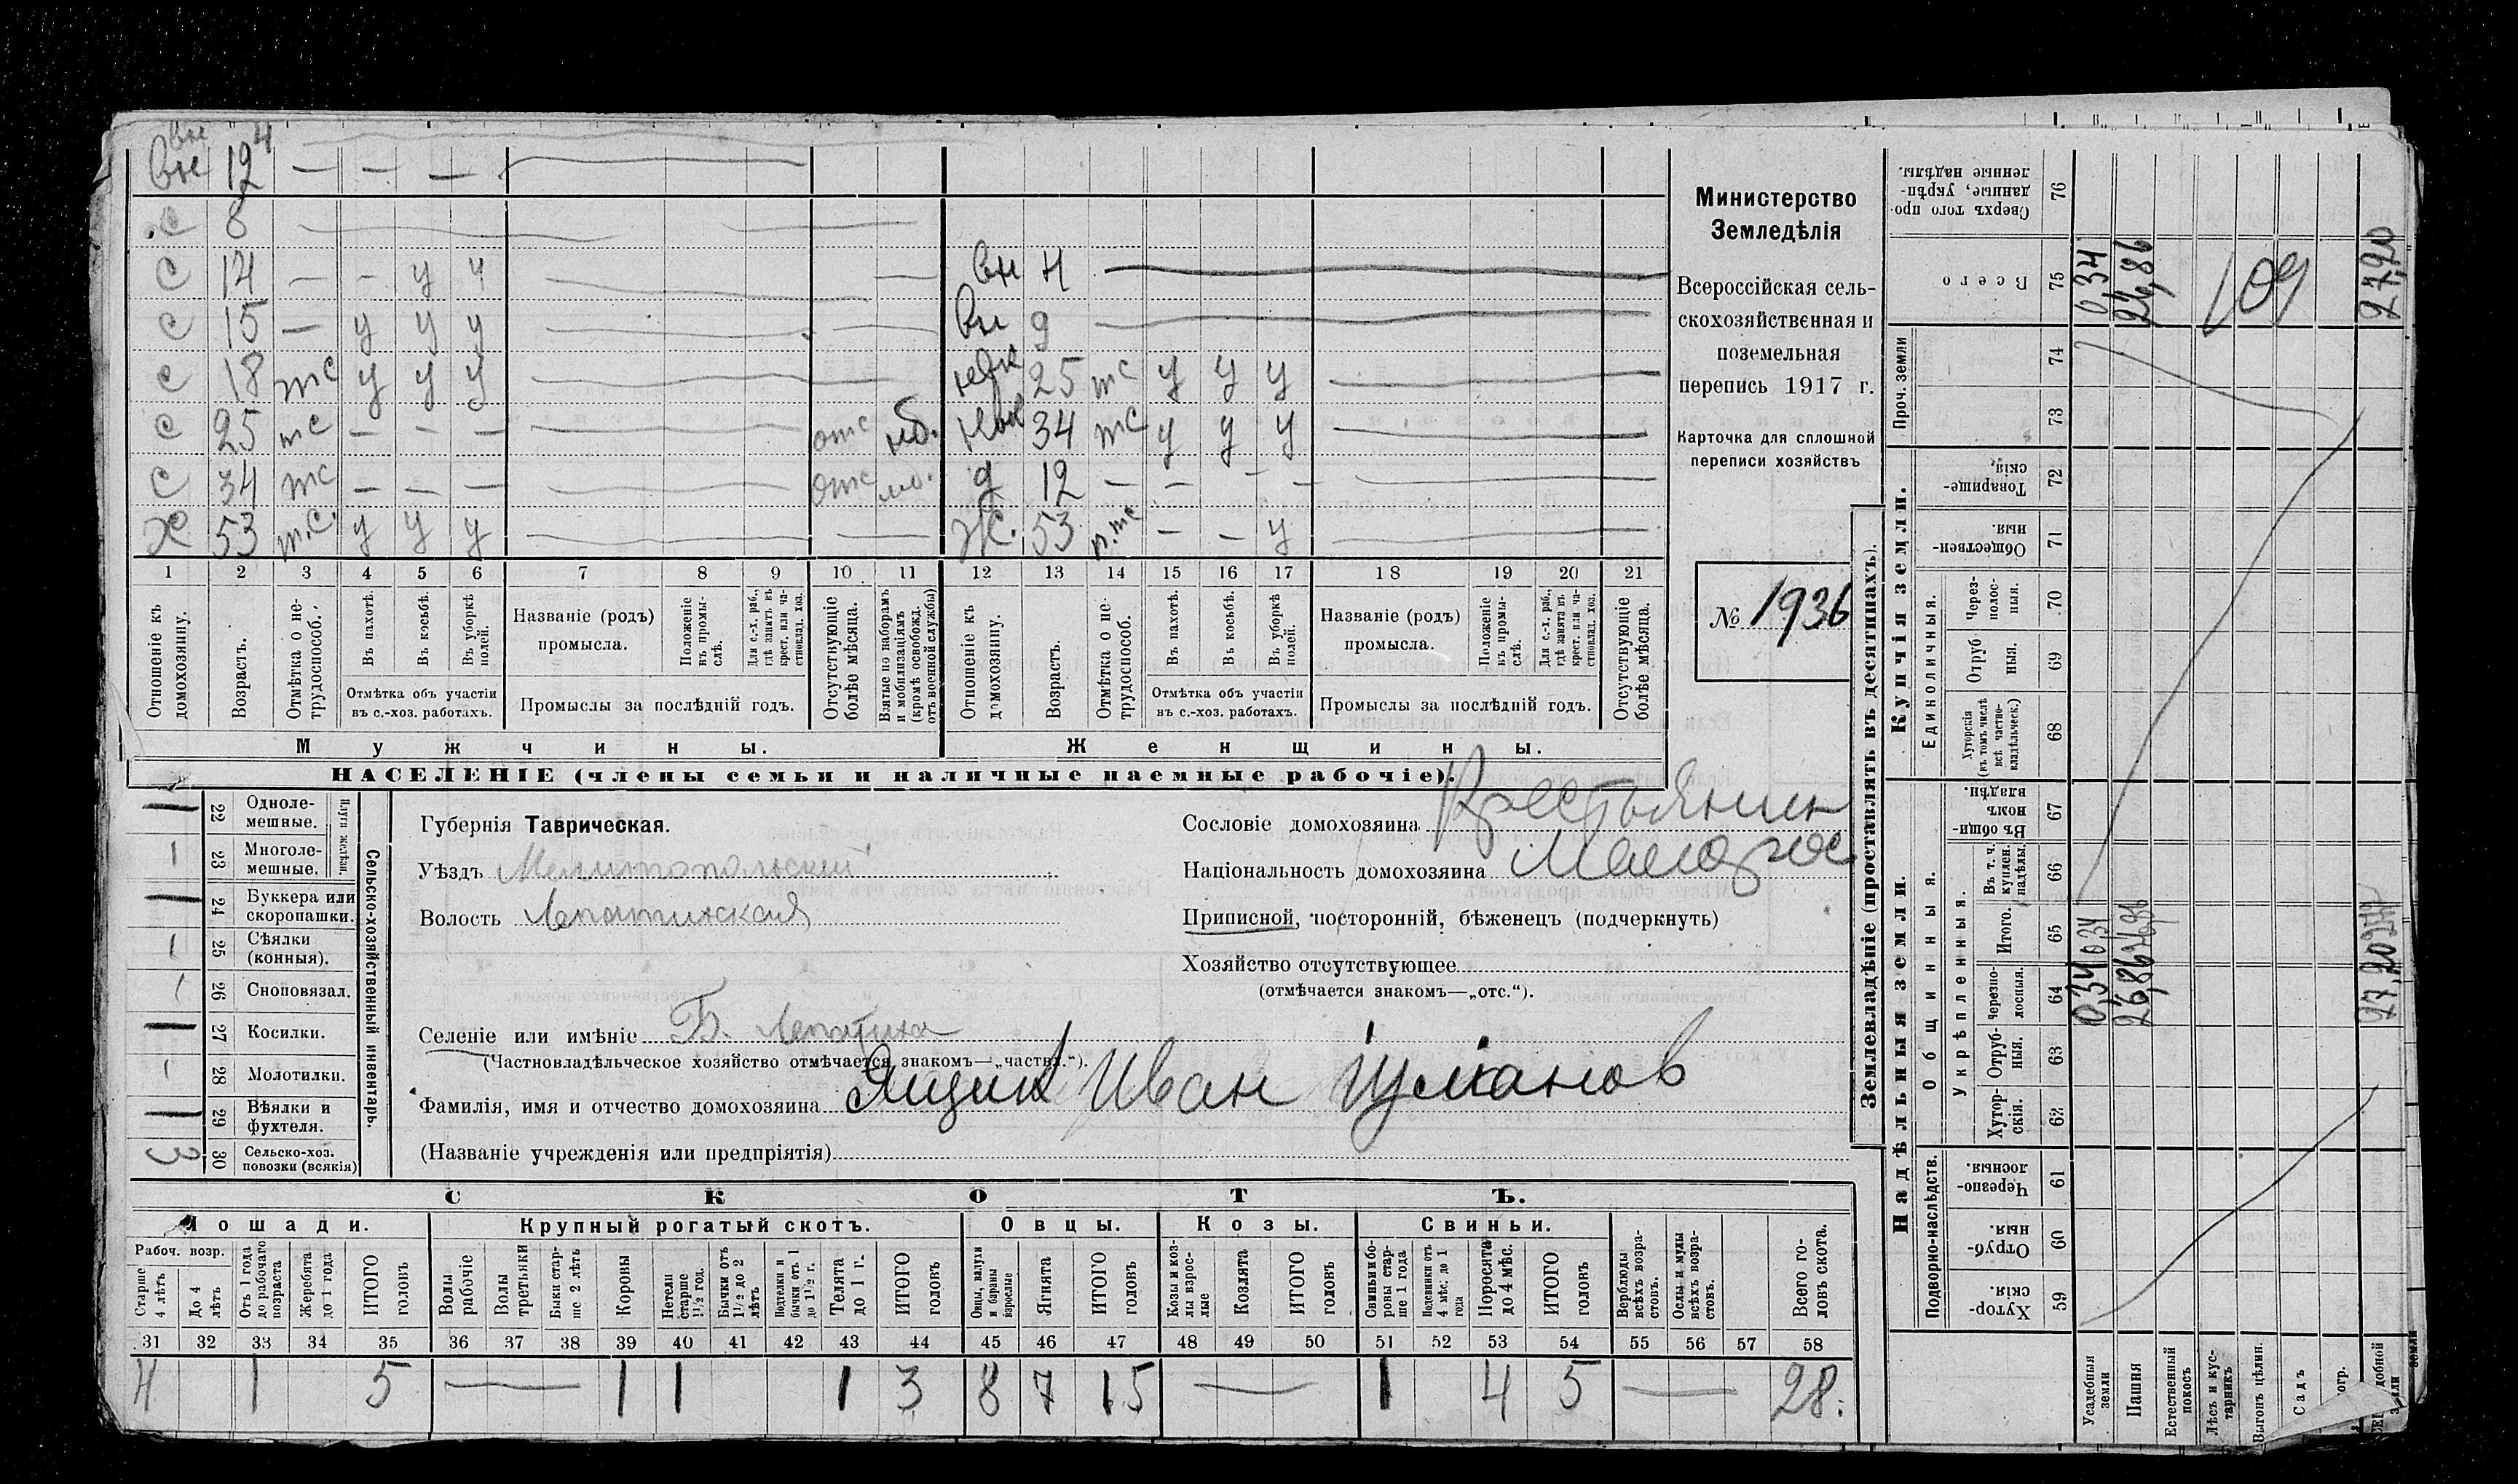 вн 4
вн 12 — — —
с 8
с 14 — — у ч вн 4
с 15 — у у у вн 9
с 18 тс у у у нвк 25 тс у у у
с 25 тс — — — отс нб. 34 тс у у у
с 34 тс — — — отс д 12 — — — —
х 53 т.с. у у у Ж. 53 п.тс — — у
1 2 3 4 5 6 7 8 9 10 11 12 13 14 15 16 17 18 19 20 21
Отношеніе къ домохозяину.
Возрастъ.
Отмѣтка о нетрудоспособ.
Въ пахотѣ.
Въ косьбѣ.
Въ уборкѣ полей.
Отмѣтка объ участіи
въ с.-хоз. работахъ.
Названіе (родъ)
промысла.
Положеніе въ промыслѣ.
Для с.-х. раб., гдѣ занятъ въ крест. или частновлад. хоз.
Промыслы за послѣдній годъ.
Отсутствующіе болѣе мѣсяца.
Взятые по наборамъ и мобилизаціямъ (кромѣ освобожд. отъ военной службы)
Отношеніе къ домохозяину.
Возрастъ.
Отмѣтка о нетрудоспособ.
Въ пахотѣ.
Въ косьбѣ.
Въ уборкѣ полей.
Отмѣтка объ участіи
въ с.-хоз. работахъ.
Названіе (родъ)
промысла.
Положеніе въ промыслѣ.
Для с.-х. раб., гдѣ занята въ крест. или частновлад. хоз.
Промыслы за послѣдній годъ.
Отсутствующіе болѣе мѣсяца.
Мужчины. Женщины.
НАСЕЛЕНІЕ (члены семьи и наличные наемные рабочіе).
Министерство
Земледѣлія
Всероссійская сель-
скохозяйственная и
поземельная
перепись 1917 г.
Карточка для сплошной
переписи хозяйствъ
№ 1936
Губернія Таврическая.
Уѣздъ Мелитопольский
Волость Лепатихская
Селеніе или имѣніе Б. Лепатиха
(Частновладѣльческое хозяйство отмѣчается знакомъ—„частн.“).
Фамилія, имя и отчество домохозяина Ящик Иван
(Названіе учрежденія или предпріятія)
Сословіе домохозяина Крестьянин
Національность домохозяина Малорос
Приписной, посторонній, бѣженецъ (подчеркнуть)
Хозяйство отсутствующее
(отмѣчается знакомъ—„отс.“).
Сельско-хозяйственный инвентарь.
Плуги желѣзн.
1 22 Одноле-
мешные.
1 23 Многоле-
мешные.
1 24 Буккера или
скоропашки.
1 25 Сѣялки
(конныя).
1 26 Сноповязал.
1 27 Косилки.
1 28 Молотилки.
1 29 Вѣялки и
фухтеля.
3 30 Сельско-хоз.
повозки (всякія)
СКОТЪ.
Лошади. Крупный рогатый скотъ. Овцы. Козы. Свиньи.
Рабоч. возр.
Старше 4 лѣтъ
До 4 лѣтъ
Отъ 1 года до рабочаго возраста
Жеребята до 1 года
ИТОГО головъ
Волы рабочіе
Волы третьяки
Быки старше 2 лѣтъ
Коровы
Нетели старше 1 1/2 год.
Бычки отъ 1 1/2 до 2 лѣтъ
Подтелки и бычки отъ 1 до 1 1/2 г.
Телята до 1 г.
ИТОГО головъ
Овцы, валухи и бараны взрослые
Ягнята
ИТОГО головъ
Козы и козлы взрослые
Козлята
ИТОГО головъ
Свиньи и боровы старше 1 года
Подсвинки отъ 4 мѣс. до 1 года
Поросята до 4 мѣс.
ИТОГО головъ
Верблюды всѣхъ возрастовъ.
Ослы и мулы всѣхъ возрастовъ.
Всего головъ скота.
31 32 33 34 35 36 37 38 39 40 41 42 43 44 45 46 47 48 49 50 51 52 53 54 55 56 57 58
4 1 5 — 1 1 1 3 8 7 15 — 1 4 5 — 28.
Землевладѣніе (проставлять въ десятинахъ).
Купчія земли.
Надѣльныя земли.
Сверхъ того проданные, укрѣпленные надѣлы. 76
Всего 75 0 34 26,86 109 27,20
Проч. земли 74 73
Товарищескія. 72
Общественныя. 71
Единоличныя.
Черезполосныя. 70
Отрубныя. 69
Хуторскія (въ томъ числѣ всѣ частновладѣльческ.) 68
Общинныя.
Въ общинномъ владѣн. 67
Укрѣпленныя.
Въ т. ч. куплен. надѣлы. 66
Итого. 65 0 34
Черезполосныя. 64 0,34 26,86 27,20
Отрубныя. 63
Хуторскія. 62
Подворно-наслѣдств.
Черезполосныя. 61
Отрубныя. 60
Хуторскія. 59
Усадебныя земли
Пашня
Естественный покосъ
Лѣсъ и кустарникъ
Выгонъ цѣлин.
Садъ